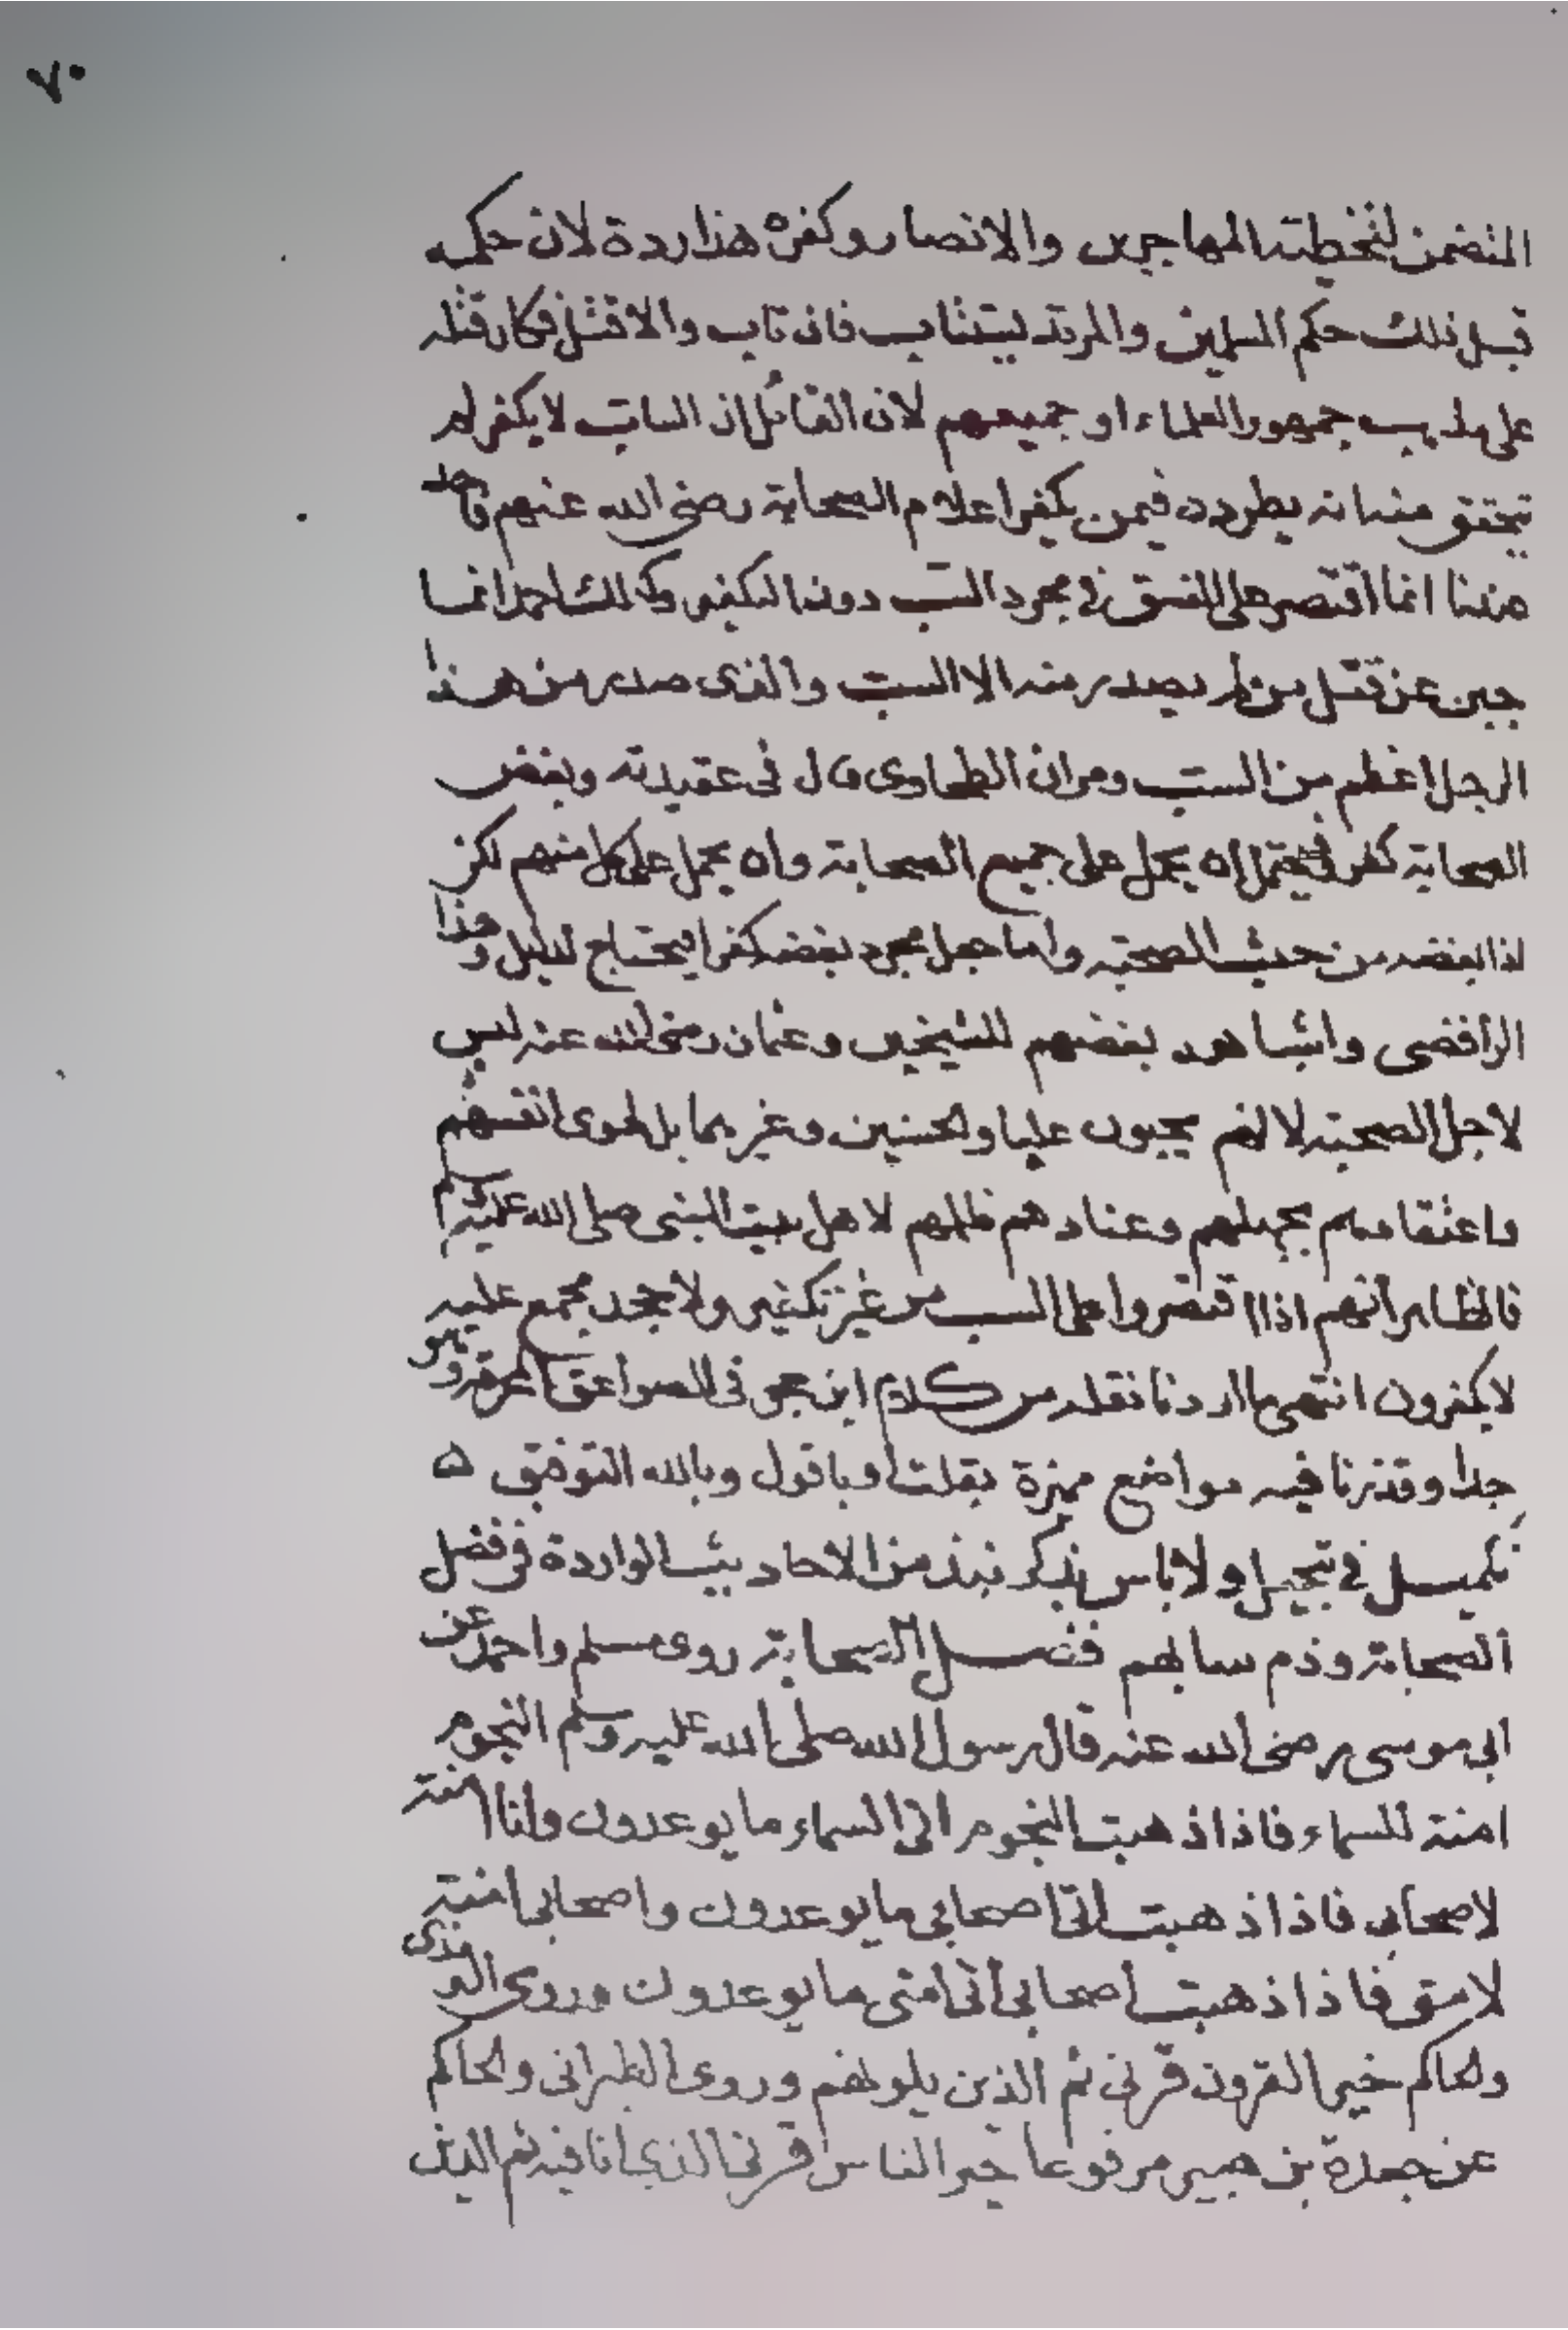 ٧٠
المتضمن لتخطئة المهاجرين والانصار وكفره هذا ردة لان حكمه
قبل ذلك حكم المسلمين والمرتد يستتاب فان تاب والا قتل فكان قتله
على مذهب جمهور العلماء او جميعهم لان القائل ان الساب لا يكفر لم
يتحقق منه انه يطرده فيمن يكفر اعلام الصحابة رضى الله عنهم فاحد
عندنا انما اقتصر على الفسق في مجرد السب دون التكفير وكذلك احمد انما
جبن عن قتل من لم يصدر منه الا السب والذى صدر من هذا
الرجل اعظم من السب ومر ان الطحاوى قال فى عقيدته وبغض
الصحابة كفر فيحتمل ان يحمل على جميع الصحابة وان يحمل على كل منهم لكن
اذا بغضه من حيث الصحبة واما جعل مجرد بغضه كفرا فيحتاج لدليل وهذا
الرافضى واشباهه بغضهم للشيخين وعثمان رضى الله عنه ليس
لاجل الصحبة لانهم يحبون عليا والحسنين وغيرهما بل لهوى انفسهم
واعتقادهم بجهلهم وعنادهم ظلمهم لاهل بيت النبى صلى الله عليه وسلم
فالظاهر انهم اذا اقتصروا على السب من غير تكفير ولا جحد مجمع عليه
لا يكفرون انتهى ما اردنا نقله من كلام ابن حجر فى الصواعق المحرقه وهو
جدا وقد زدنا فيه مواضع مميزة بقلت او باقول وبالله التوفيق ه
تكميل في تبجيل ولا باس بذكر نبذ من الاحاديث الواردة فى فضل
الصحابة وذم سابهم فضل الصحابة روى مسلم واحمد عن
ابى موسى رضى الله عنه قال رسول الله صلى الله عليه وسلم النجوم
امنة للسماء فاذا ذهبت النجوم اتى السماء ما يوعدون وانا امنة
لاصحابى فاذا ذهبت اتى اصحابى ما يوعدون واصحابى امنة
لامتى فاذا ذهبت اصحابى اتى امتى ما يوعدون وروى الترمذى
والحاكم خير القرون قرنى ثم الذين يلونهم وروى الطبرانى والحاكم
عن جعدة بن هبيرة مرفوعا خير الناس قرنى الذى انا فيه ثم الذين